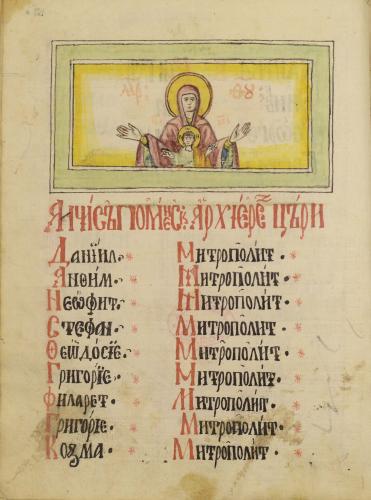 ΜΡ ΘΥ
АИЧИ СЪ ПОМЕНЕСК АРХІЕРЕ ЦѢРИ
Даніил * Митрополит •
Анѳим • * Митрополит •
Неѡфит • * Митрополит •
Стефан * Митрополит •
Ѳеѡдосіе • * Митрополит •
Григоріе • * Митрополит •
Филарет • * Митрополит •
Григоріе • * Митрополит •
Козма • * Митрополит •